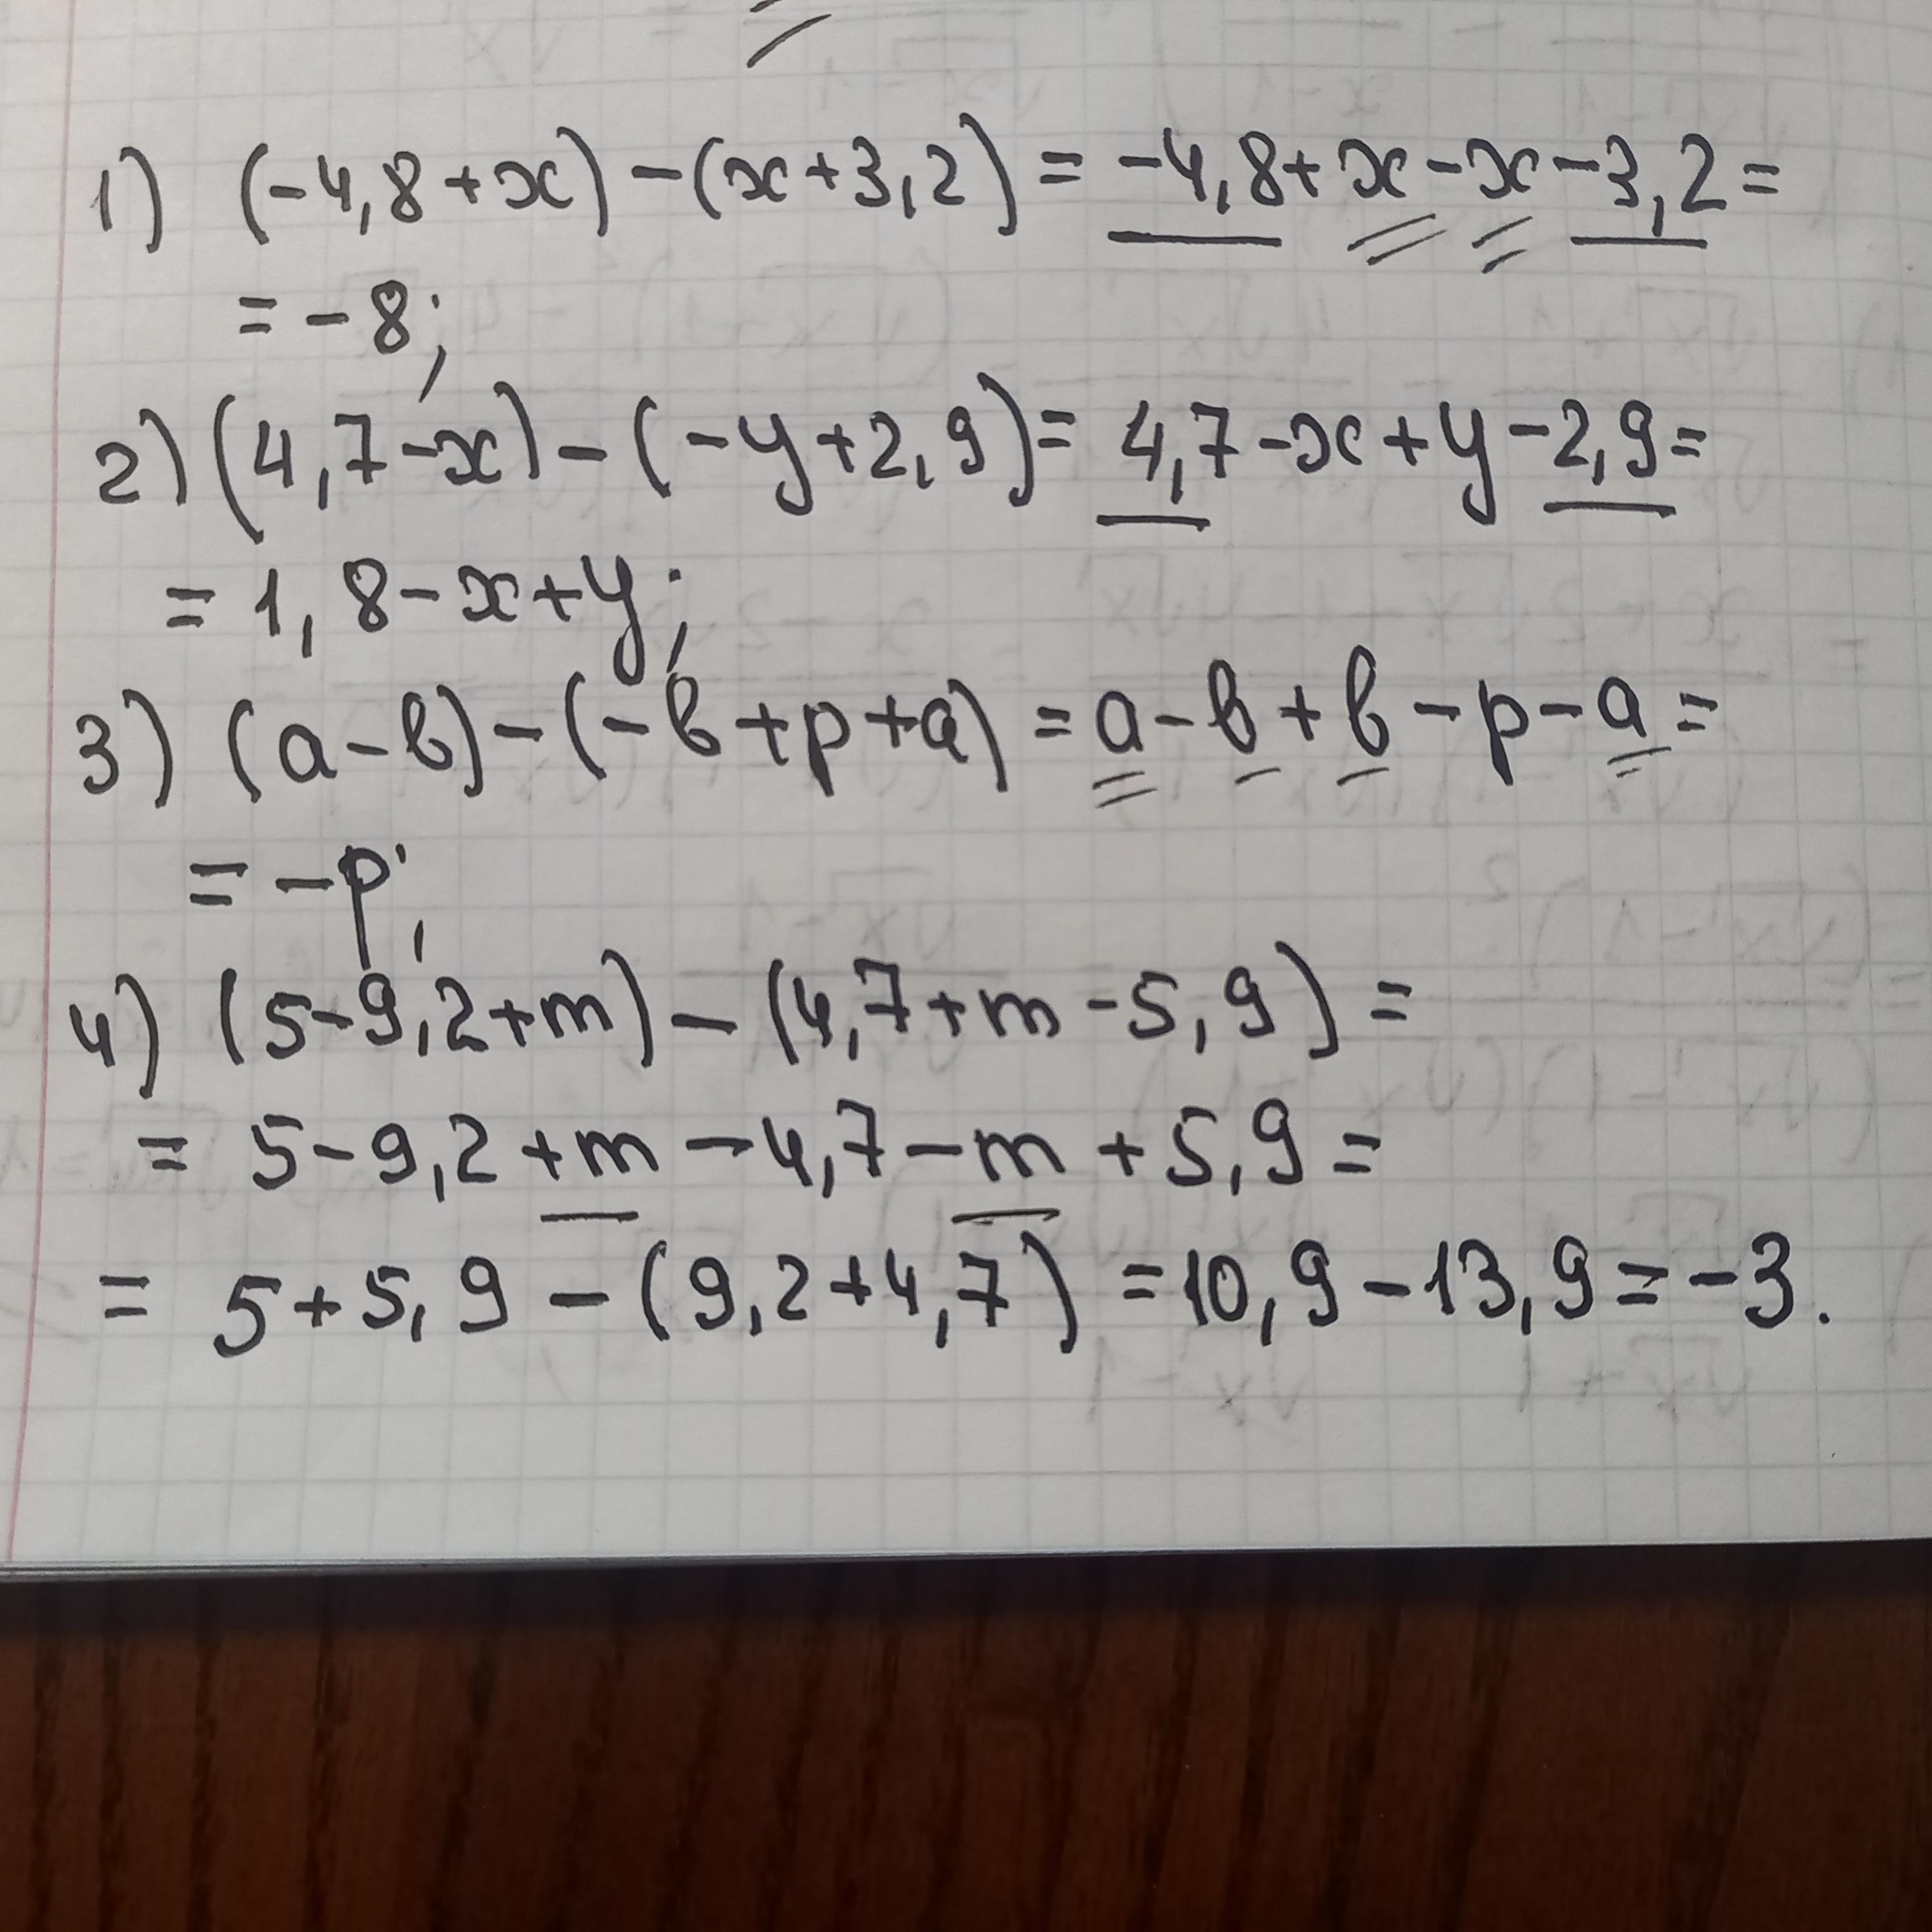 1) (-4,8+x)-(x+3,2)=-4,8+x-x-3,2=
=-8;
2) (4,7-x)-(-y+2,9)=4,7-x+y-2,9=
=1,8-x+y;
3) (a-b)-(-b+p+a)=a-b+b-p-a=
=-p;
4) (5-9,2+m)-(4,7+m-5,9)=
=5-9,2+m-4,7-m+5,9=
=5+5,9-(9,2+4,7)=10,9-13,9=-3.